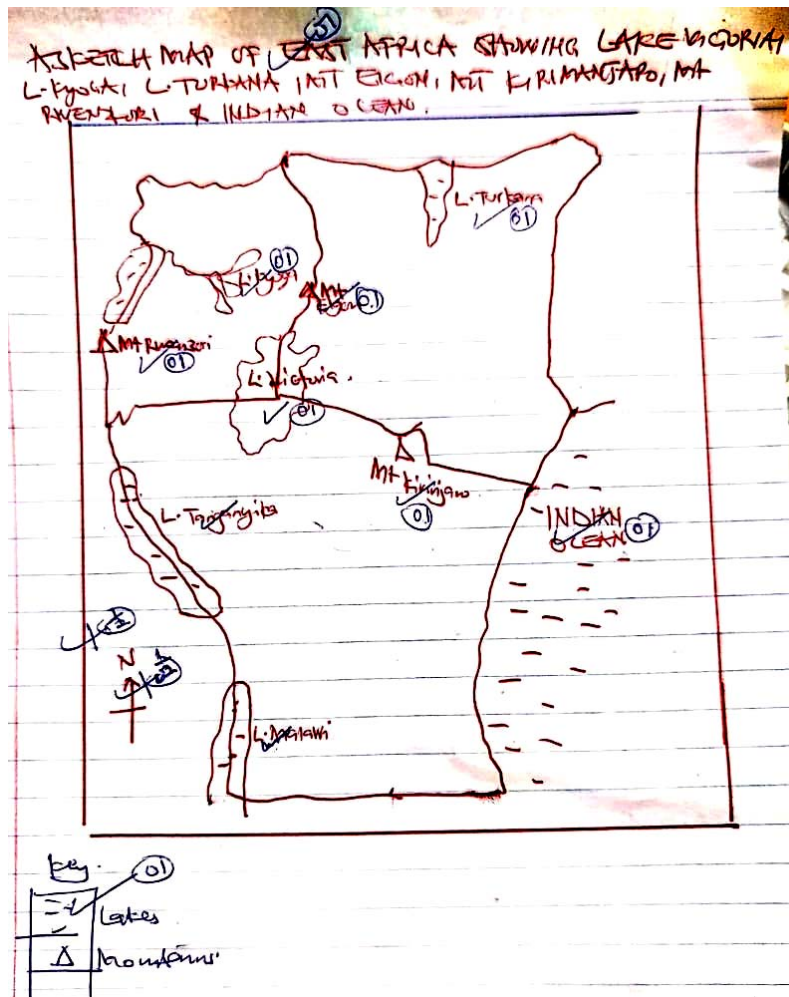 01
A SKETCH MAP OF EAST AFRICA SHOWING LAKE VICTORIA,
L. Kyoga, L. TURKANA, MT ELGON, MT KIRIMANJARO, MT
RWENZORI & INDIAN OCEAN.
L. Turkana
01
01
L. Kyoga
Mt
Elgon
01
Mt Rwenzori
01
L. Victoria
01
Mt Kirinjaro
01
L. Tanganyika
INDIAN
OCEAN
01
½
N
½
L. Malawi
Key.
01
Lakes
Mountains.